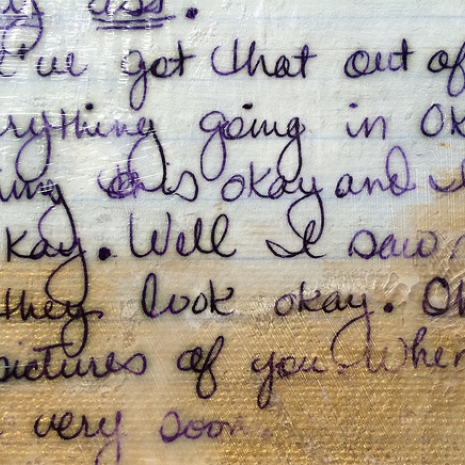 ass.
I've got that out of
rything going in OK
ing this okay and I
kay. Well I saw
they look okay. Oh
pictures of you. When
very soon.